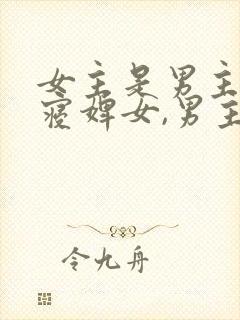 女主是男主
寝婢女,男主
令九舟